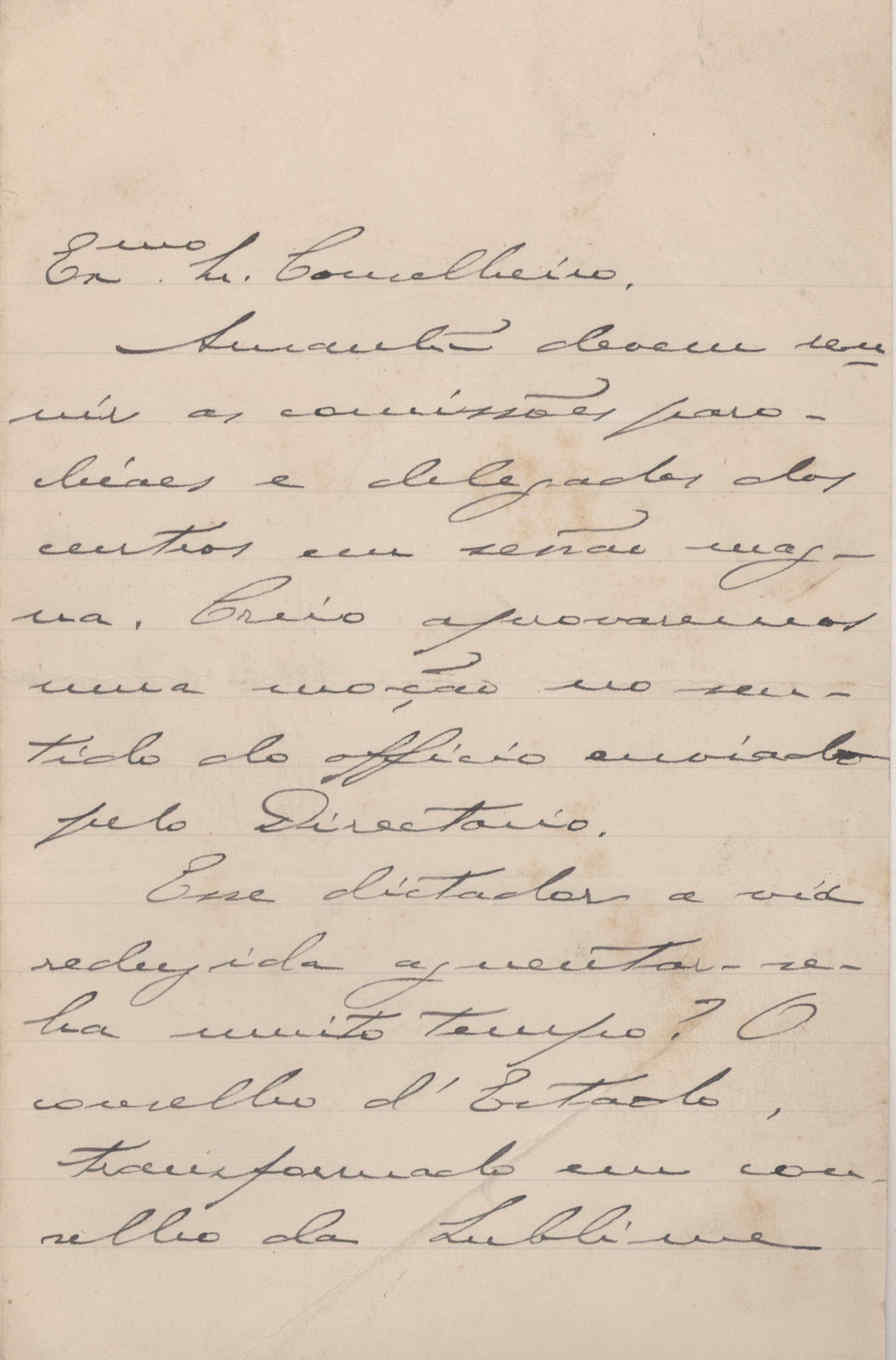 Exmo. Sr. Conselheiro,
Amanhã devem reu-
nir as comissões paro-
chiaes e delegados dos
centros em sessão mag-
na. Creio aprovaremos
uma moção no sen-
tido do officio enviado
pelo Directorio.
Esse dictador a vid
reduzida aguentar-se-
ha muito tempo? O
conselho d'Estado,
transformado em con-
selho da Sublime